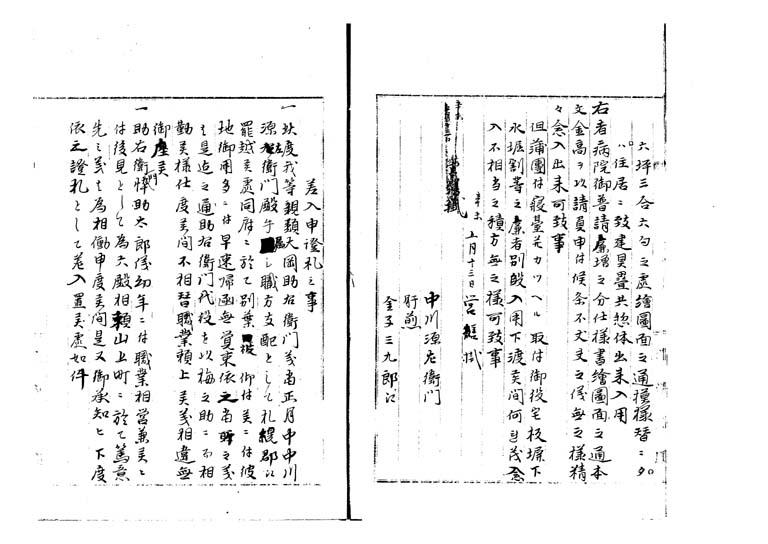 六坪三合六勺之處繪圖面之通模様替ニ夕
ハ住居ニ致建具疊共惣体出来入用
右者病院御普請廉增之分仕様書繪圖面之通本
文金高ヲ以請負申付候条不丈夫之儀無之様精
々念入出来可致事
但蒲團付寢臺并カツヘル取付御役宅板塀下
水堀割等之廉者別段入用下渡候間何レ茂念
入不相当之積方無之様可致事
辛未
五月十三日 営繕掛
中川源左衛門
肝煎
金子三九郎江
差入申證札之事
一此度我等親類大岡助右衛門義当正月中中川
源左衛門殿手ニ職方支配として札幌郡江
罷越候處同所ニ於て別葉被 仰付候ニ付彼
地御用多ニ付早速帰函無覚束依之当時之義
者是迄之通助右衛門代役を以梅之助ニ而相
勤候様仕度候間不相替職業頼上候義相違無
御座候
一助右衛門悴助太郎儀幼年ニ付職業相営兼候ニ
付後見として為六殿相頼山上町ニ於て篤意
先之義も為相働申度候間是又御承知被下度
依之證札として差入置候處如件